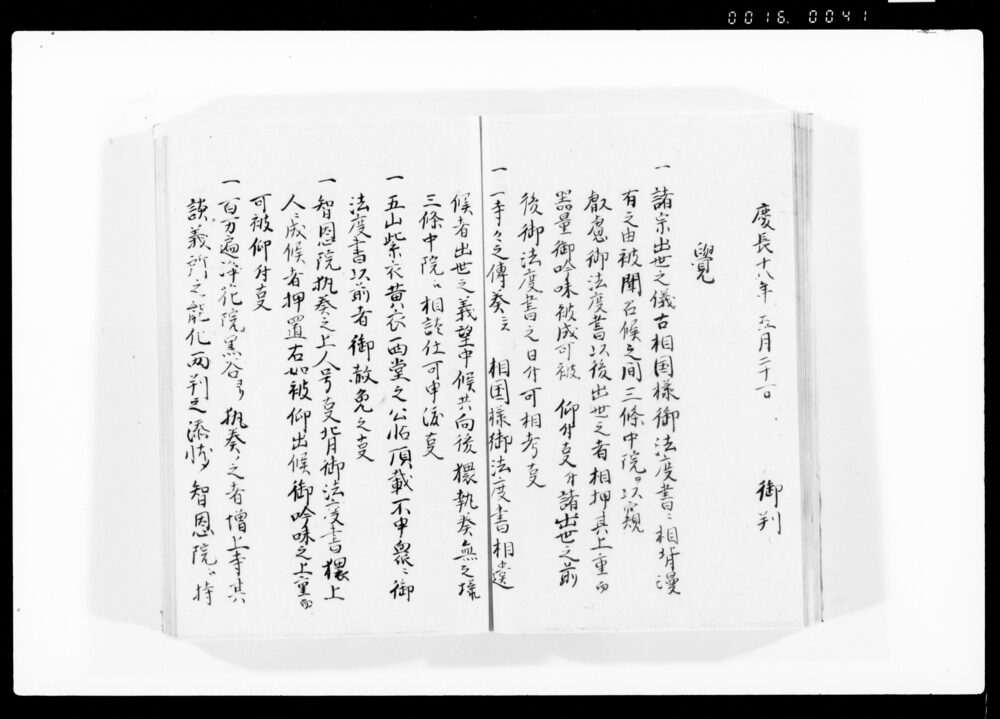 0016. 0041
慶長十八年 五月二十一日 御判
覺
一 諸宗出世之儀古相国様御法度書ニ相背漫
有之由被聞召候之間三條中院ヲ以窺
叡慮御法度書以後出世之者相押其上重而
器量御吟味被成可被 仰付支付諸出世之前
後御法度書之日付可相考支
一 一寺々之傳奏ニ 相国様御法度書相違
候者出世之義望申候共向後猥執奏無之様
三條中院ニ相談仕可申渡支
一 五山紫衣黄衣西堂之公帖頂戴不申衆ニ御
法度書以前者御赦免之支
一 智恩院執奏之上人号支背御法度書猥上
人ニ成候者押置右如被仰出候御吟味之上重而
可被仰付支
一 百万遍浄花院黒谷ヨリ執奏之者増上寺其
談義所之能化両判之添状 智恩院ニ持